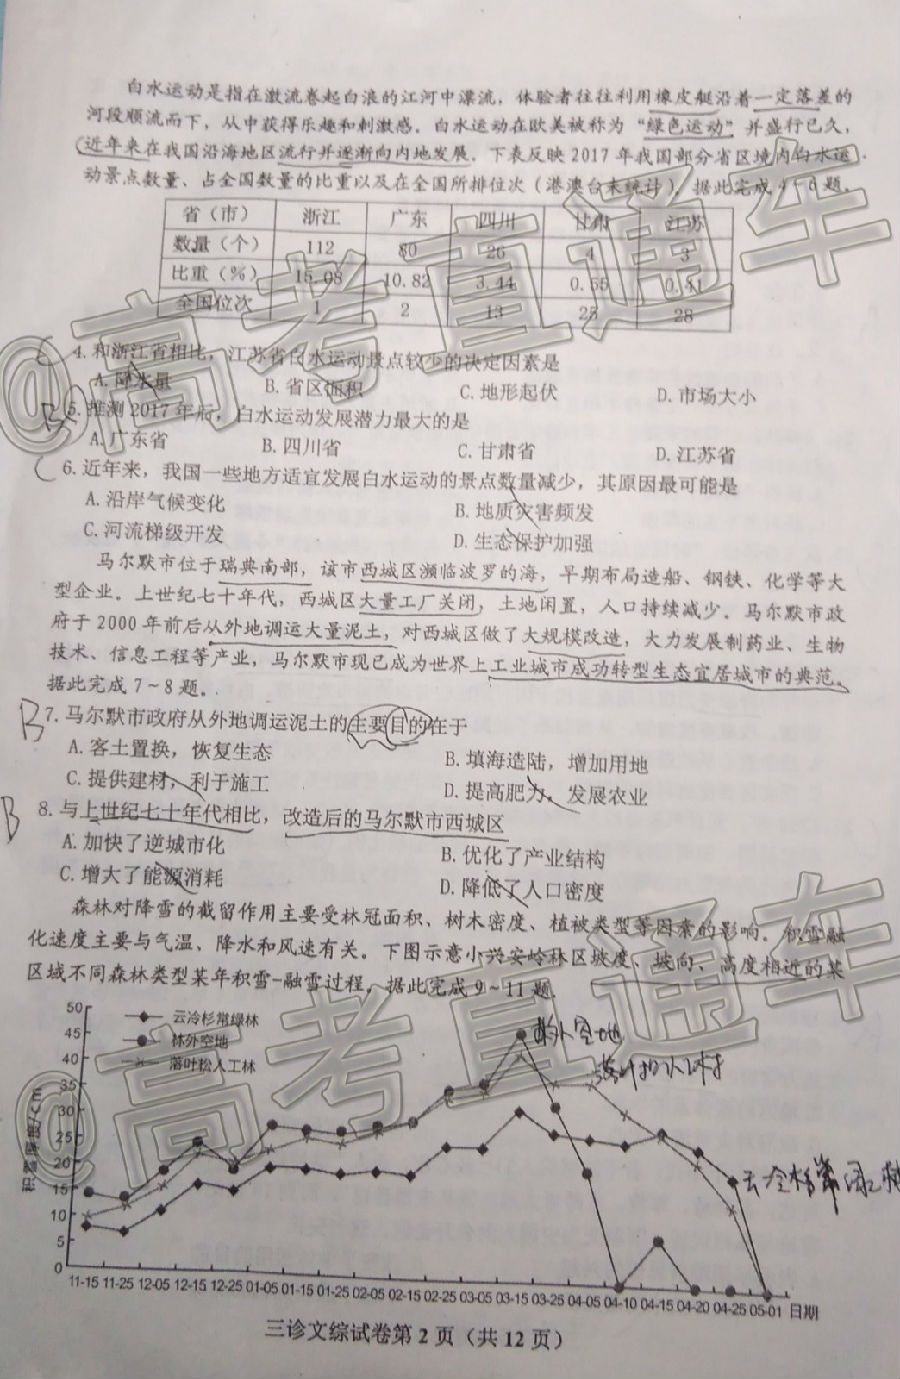 白水运动是指在激流卷起白浪的江河中漂流，体验者往往利用橡皮艇沿着一定落差的
河段顺流而下，从中获得乐趣和刺激感。白水运动在欧美被称为“绿色运动”并盛行已久，
近年来在我国沿海地区流行并逐渐向内地发展。下表反映2017年我国部分省区境内白水运
动景点数量、占全国数量的比重以及在全国所排位次（港澳台未统计）。据此完成4～6题。
省（市） 浙江 广东 四川 甘肃 江苏
数量（个） 112 80 26 4 3
比重（%） 15.08 10.82 3.44 0.55 0.41
全国位次 1 2 13 25 28
C 4.和浙江省相比，江苏省白水运动景点较少的决定因素是
A.降水量 B.省区面积 C.地形起伏 D.市场大小
B 5.推测2017年后，白水运动发展潜力最大的是
A.广东省 B.四川省 C.甘肃省 D.江苏省
C 6.近年来，我国一些地方适宜发展白水运动的景点数量减少，其原因最可能是
A.沿岸气候变化 B.地质灾害频发
C.河流梯级开发 D.生态保护加强
马尔默市位于瑞典南部，该市西城区濒临波罗的海，早期布局造船、钢铁、化学等大
型企业。上世纪七十年代，西城区大量工厂关闭，土地闲置，人口持续减少。马尔默市政
府于2000年前后从外地调运大量泥土，对西城区做了大规模改造，大力发展制药业、生物
技术、信息工程等产业，马尔默市现已成为世界上工业城市成功转型生态宜居城市的典范。
据此完成7～8题。
B 7.马尔默市政府从外地调运泥土的主要目的在于
A.客土置换，恢复生态 B.填海造陆，增加用地
C.提供建材，利于施工 D.提高肥力，发展农业
B 8.与上世纪七十年代相比，改造后的马尔默市西城区
A.加快了逆城市化 B.优化了产业结构
C.增大了能源消耗 D.降低了人口密度
森林对降雪的截留作用主要受林冠面积、树木密度、植被类型等因素的影响。积雪融
化速度主要与气温、降水和风速有关。下图示意小兴安岭林区坡度、坡向、高度相近的某
区域不同森林类型某年积雪-融雪过程，据此完成9～11题。
云冷杉常绿林
林外空地
落叶松人工林
林外空地
落叶松人工林
云冷杉常绿林
积雪厚度/cm
50
45
40
35
30
25
20
15
10
5
0
11-15 11-25 12-05 12-15 12-25 01-05 01-15 01-25 02-05 02-15 02-25 03-05 03-15 03-25 04-05 04-10 04-15 04-20 04-25 05-01 日期
三诊文综试卷第2页（共12页）
@高考直通车
@高考直通车